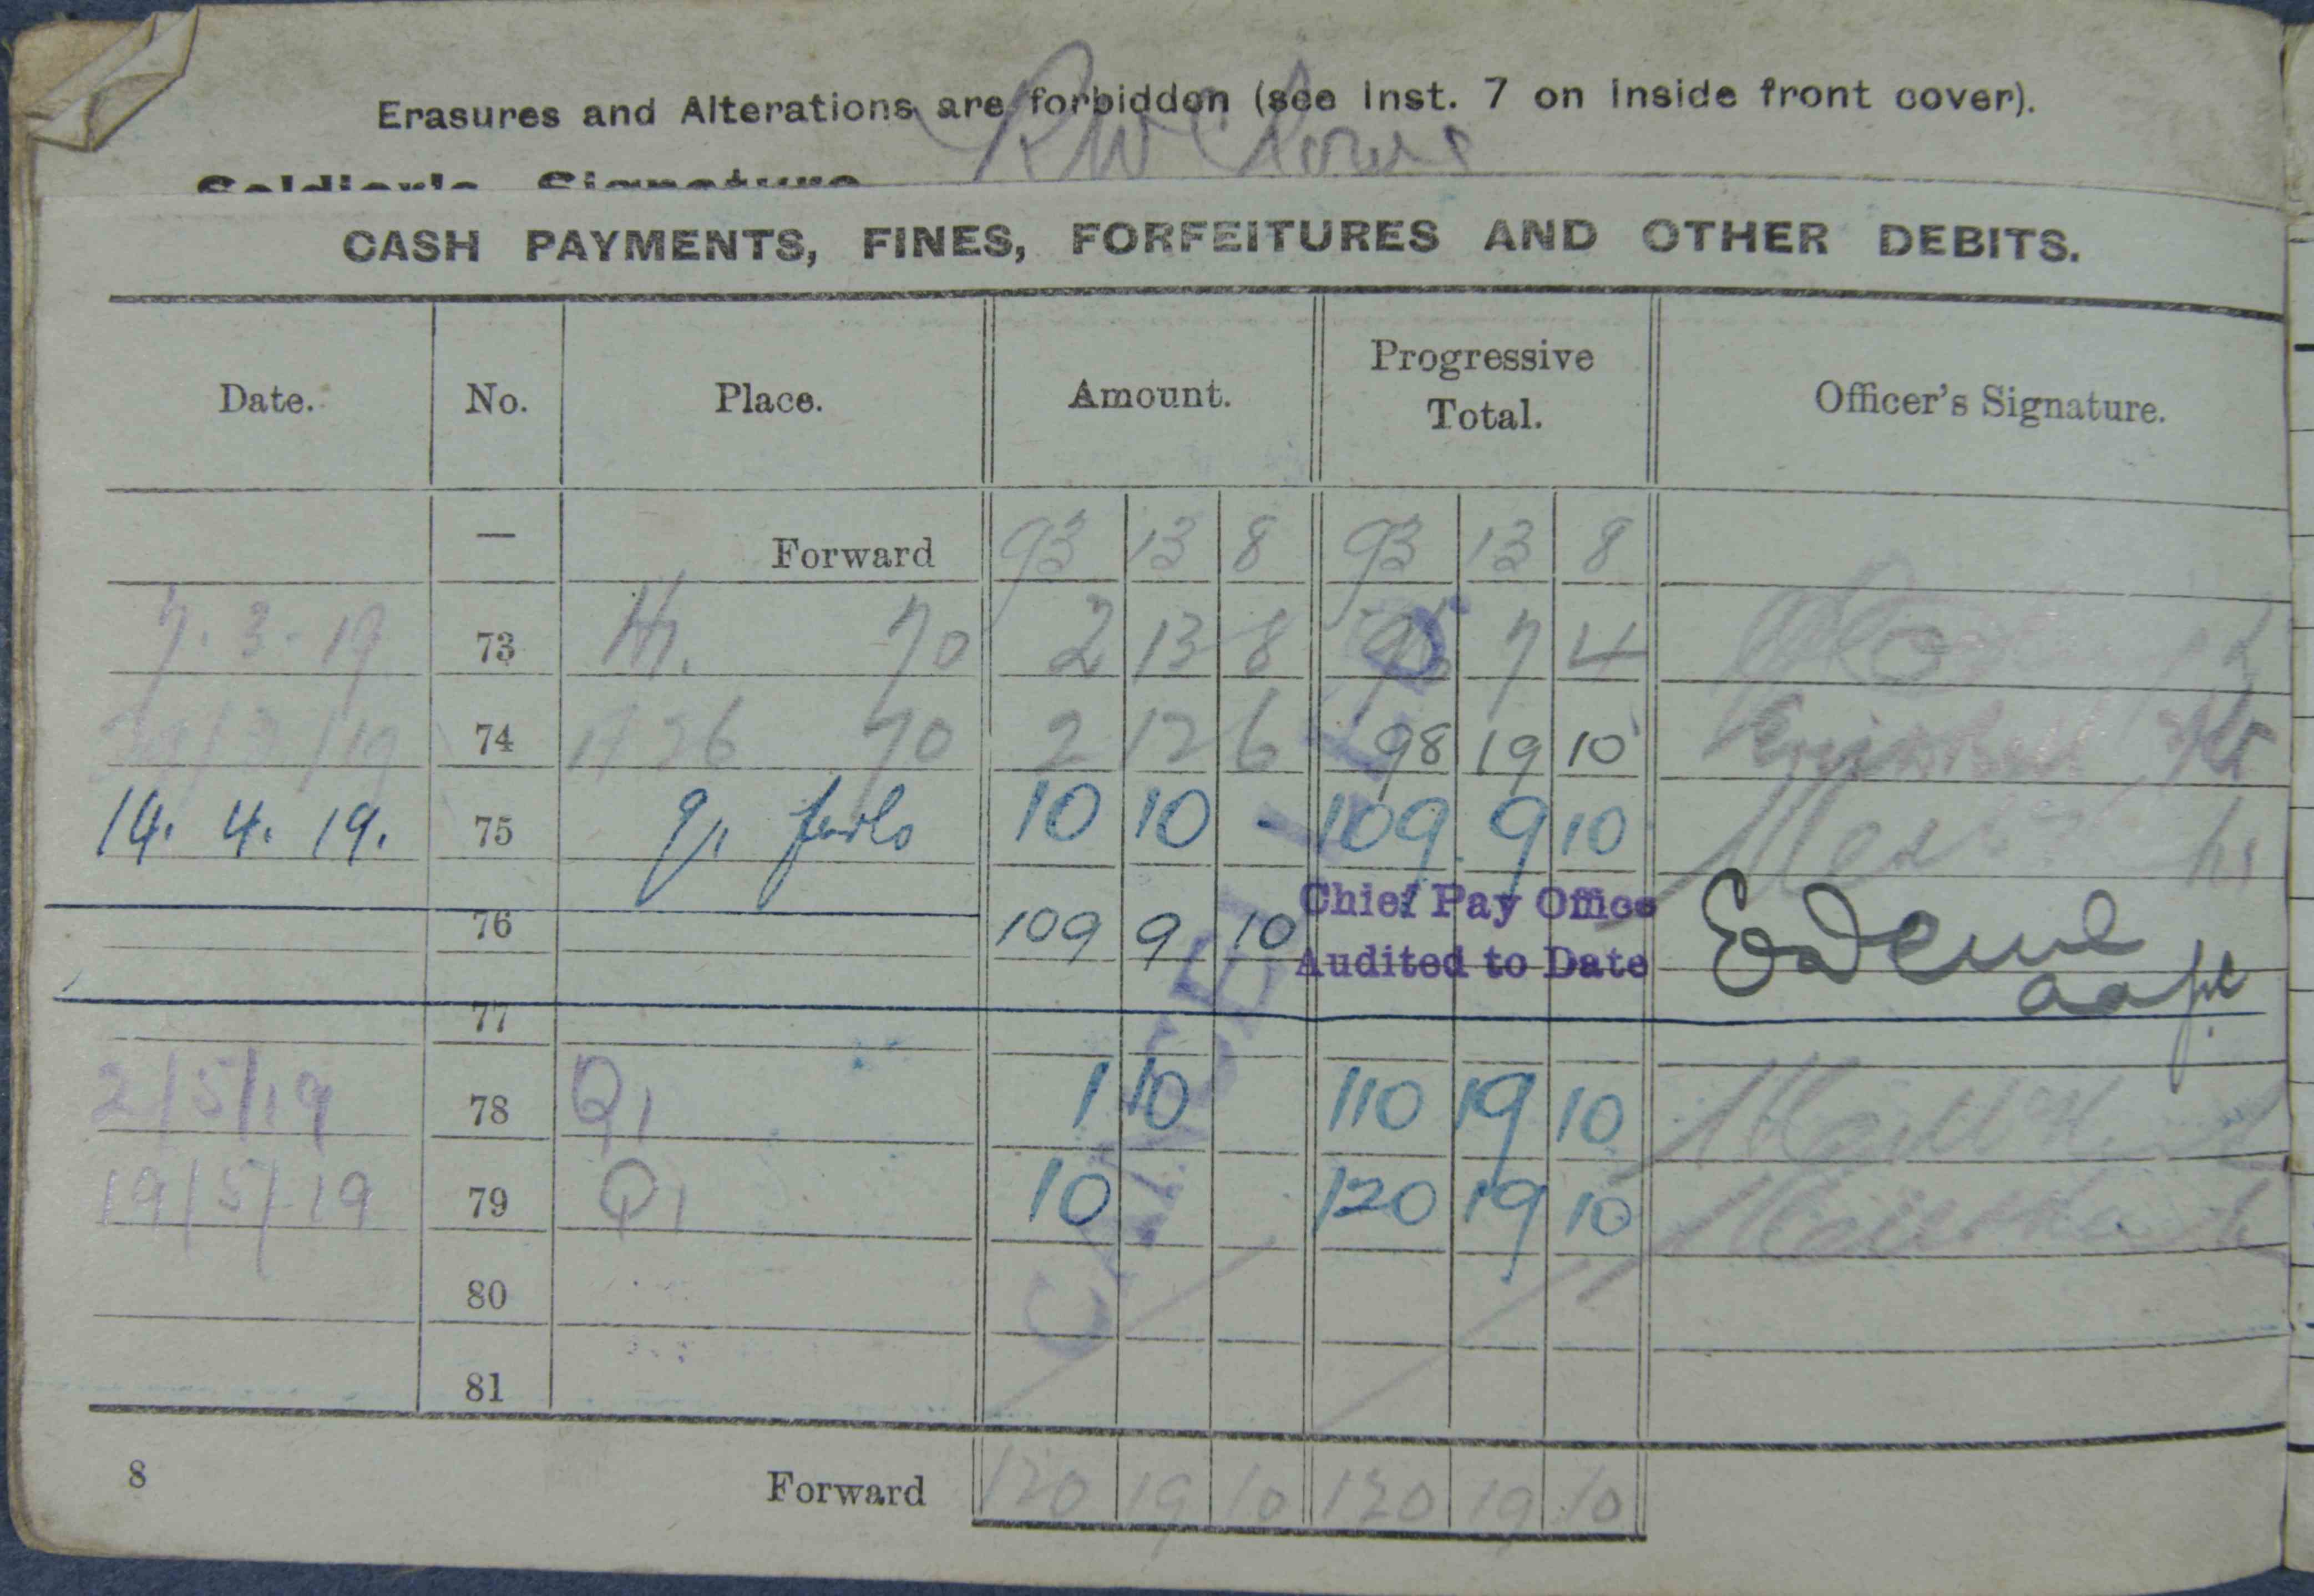 Erasures and Alterations are forbidden (see Inst. 7 on inside front cover).
Soldier's Signature
CASH PAYMENTS, FINES, FORFEITURES AND OTHER DEBITS.
Date. No. Place. Amount. Progressive Total. Officer's Signature.
— Forward 93 13 8 93 13 8
7.3.19 73 70 2 13 8 7 4
/19 74 70 2 12 6 98 19 10
14. 4. 19. 75 furlo 10 10 - 109 9 10
76 109 9 10 Chief Pay Office
Audited to Date
77
2/5/19 78 Q1 1 10 110 19 10
19/5/19 79 Q1 10 120 19 10
80
81
CANCELLED
8 Forward 120 19 10 120 19 10